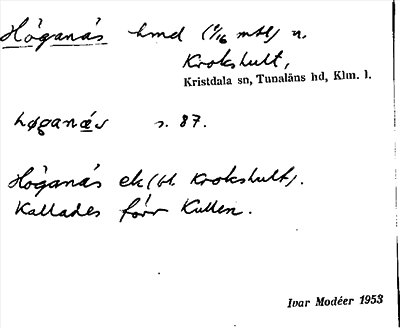 Höganäs hmd (1/16 mtl) n.
Krokshult,
Kristdala sn, Tunaläns hd, Klm. l.
høganæs s. 87.
Höganäs ek (bl. Krokshult).
Kallades förr Kullen.
Ivar Modéer 1953